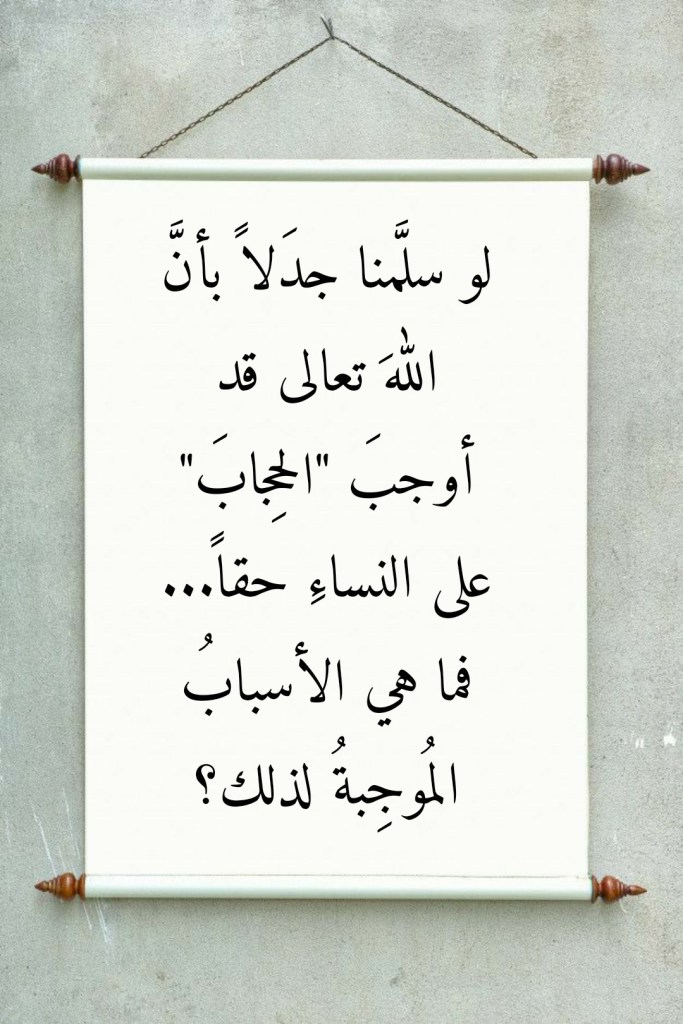 لو سلَّمنا جدَلاً بأنَّ
اللهَ تعالى قد
أوجبَ "الحِجابَ"
على النساءِ حقاً...
فما هي الأسبابُ
المُوجِبةُ لذلك؟